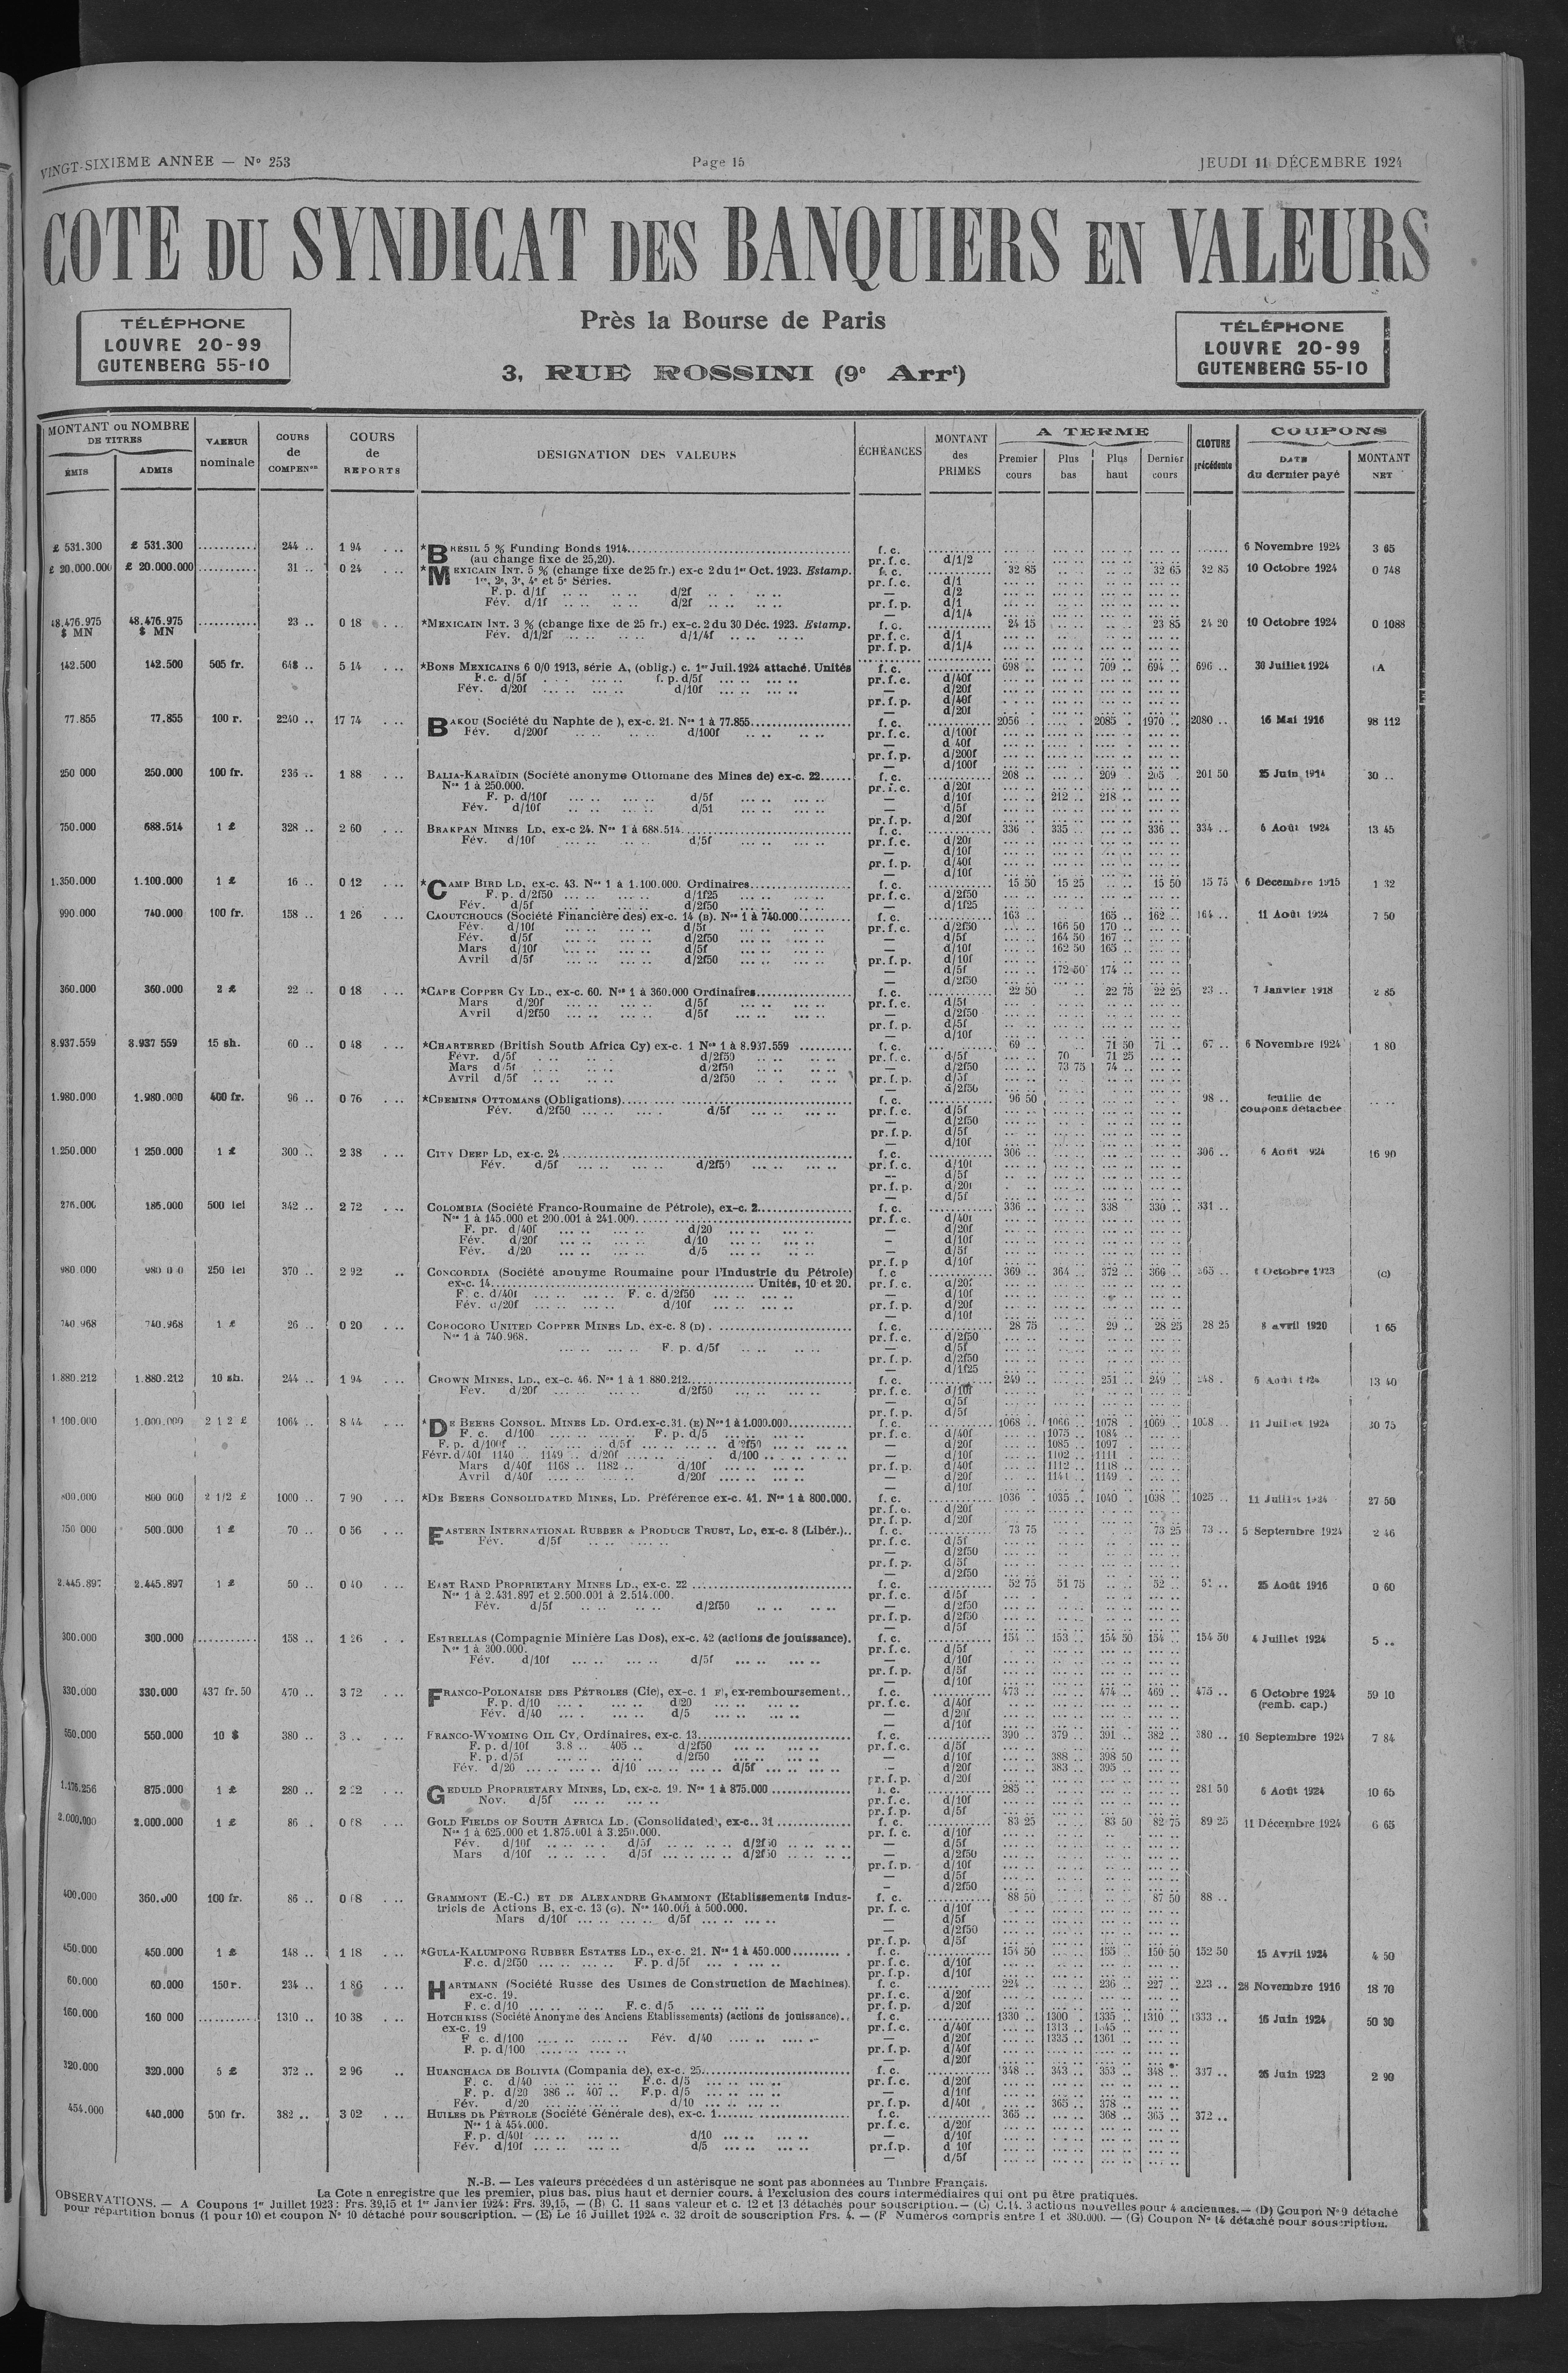 VINGT-SIXIÈME ANNÉE — N° 253 Page 15 JEUDI 11 DÉCEMBRE 1924
COTE DU SYNDICAT DES BANQUIERS EN VALEURS
TÉLÉPHONE
LOUVRE 20-99
GUTENBERG 55-10
Près la Bourse de Paris
3, RUE ROSSINI (9e Arrt)
TÉLÉPHONE
LOUVRE 20-99
GUTENBERG 55-10
MONTANT ou NOMBRE DE TITRES
ÉMIS ADMIS
VALEUR nominale
COURS de COMPENon
COURS de REPORTS
DESIGNATION DES VALEURS
ÉCHÉANCES
MONTANT des PRIMES
A TERME
Premier cours Plus bas Plus haut Dernier cours
CLOTURE précédente
COUPONS
DATE du dernier payé MONTANT NET
£ 531.300 £ 531.300 244 .. 1 94 *BRESIL 5 % Funding Bonds 1914 f. c. 6 Novembre 1924 3 65
(au change fixe de 25,20). pr. f. c. d/1/2
£ 20.000.000 £ 20.000.000 31 .. 0 24 *MEXICAIN INT. 5 % (change fixe de 25 fr.) ex-c 2 du 1er Oct. 1923. Estamp. f. c. 32 85 32 65 32 85 10 Octobre 1924 0 748
1re, 2e, 3e, 4e et 5e Séries. pr. f. c. d/1
F. p. d/1f d/2f — d/2
Fév. d/1f d/2f pr. f. p. d/1
— d/1/4
48.476.975 $ MN 48.476.975 $ MN 23 .. 0 18 *MEXICAIN INT. 3 % (change fixe de 25 fr.) ex-c. 2 du 30 Déc. 1923. Estamp. f. c. 24 15 23 85 24 20 10 Octobre 1924 0 1088
Fév. d/1/2f d/1/4f pr. f. c. d/1
pr. f. p. d/1/4
142.500 142.500 505 fr. 648 .. 5 14 *BONS MEXICAINS 6 0/0 1913, série A, (oblig.) c. 1er Juil. 1924 attaché. Unités f. c. 698 .. 709 .. 694 .. 696 .. 30 Juillet 1924 (A
F.c. d/5f f. p. d/5f pr. f. c. d/40f
Fév. d/20f d/10f — d/20f
pr. f. p. d/40f
— d/20f
77.855 77.855 100 r. 2240 .. 17 74 BAKOU (Société du Naphte de ), ex-c. 21. Nos 1 à 77.855 f. c. 2056 . 2085 . 1970 .. 2080 .. 16 Mai 1916 98 112
Fév. d/200f d/100f pr. f. c. d/100f
— d 40f
pr. f. p. d/200f
— d/100f
250 000 250.000 100 fr. 236 .. 1 88 BALIA-KARAÏDIN (Société anonyme Ottomane des Mines de) ex-c. 22 f. c. 208 .. 209 . 205 .. 201 50 25 Juin 1914 30 ..
Nos 1 à 250.000. pr. f. c. d/20f
F. p. d/10f d/5f — d/10f 212 .. 218 ..
Fév. d/10f d/51 — d/5f
pr. f. p. d/20f
750.000 688.514 1 £ 328 .. 2 60 BRAKPAN MINES LD, ex-c 24. Nos 1 à 688.514 f. c. 336 . 335 .. 336 .. 334 .. 6 Août 1924 13 45
Fév. d/10f d/5f pr. f. c. d/20f
— d/10f
pr. f. p. d/40f
— d/10f
1.350.000 1.100.000 1 £ 16 .. 0 12 *CAMP BIRD LD, ex-c. 43. Nos 1 à 1.100.000. Ordinaires f. c. 15 50 15 25 15 50 15 75 6 Décembre 1915 1 32
F. p. d/2f50 d/1f25 pr. f. c. d/2f50
Fév. d/5f d/2f50 — d/1f25
990.000 740.000 100 fr. 158 .. 1 26 CAOUTCHOUCS (Société Financière des) ex-c. 14 (B). Nos 1 à 740.000 f. c. 163 .. 165 .. 162 .. 164 .. 11 Août 1924 7 50
Fév. d/10f d/5f pr. f. c. d/2f50 166 50 170 ..
Fév. d/5f d/2f50 — d/5f 164 50 167 ..
Mars d/10f d/5f — d/10f 162 50 165 ..
Avril d/5f d/2f50 pr. f. p. d/10f
— d/5f 172 50 174 ..
— d/2f50
360.000 360.000 2 £ 22 .. 0 18 *CAPE COPPER CY LD., ex-c. 60. Nos 1 à 360.000 Ordinaires f. c. 22 50 22 75 22 25 23 .. 7 Janvier 1918 2 85
Mars d/20f d/5f pr. f. c. d/5f
Avril d/2f50 d/5f — d/2f50
pr. f. p. d/5f
— d/10f
8.937.559 8.937 559 15 sh. 60 .. 0 48 *CHARTERED (British South Africa Cy) ex-c. 1 Nos 1 à 8.937.559 f. c. 69 .. 71 50 71 .. 67 .. 6 Novembre 1924 1 80
Févr. d/5f d/2f50 pr. f. c. d/5f 70 71 25
Mars d/5f d/2f50 — d/2f50 73 75 74 ..
Avril d/5f d/2f50 pr. f. p. d/5f
— d/2f50
1.980.000 1.980.000 400 fr. 96 .. 0 76 *CHEMINS OTTOMANS (Obligations) f. c. 96 50 98 .. feuille de
Fév. d/2f50 d/5f pr. f. c. d/5f coupons détacher
— d/2f50
pr. f. p. d/5f
— d/10f
1.250.000 1 250.000 1 £ 300 .. 2 38 CITY DEEP LD, ex-c. 24 f. c. 306 .. 306 .. 6 Août 924 16 90
Fév. d/5f d/2f50 pr. f. c. d/10f
— d/5f
pr. f. p. d/20f
— d/5f
276.000 186.000 500 lei 342 .. 2 72 COLOMBIA (Société Franco-Roumaine de Pétrole), ex-c. 2 f. c. 336 .. 338 330 .. 331 ..
Nos 1 à 145.000 et 200.001 à 241.000 pr. f. c. d/40f
F. pr. d/40f d/20 — d/20f
Fév. d/20f d/10 — d/10f
Fév. d/20 d/5 — d/5f
pr. f. p d/10f
980.000 980 0 0 250 lei 370 .. 2 92 CONCORDIA (Société anonyme Roumaine pour l'Industrie du Pétrole) f. c 369 .. 364 .. 372 .. 366 .. 365 .. Octobre 1923 (c)
ex-c. 14 Unités, 10 et 20. pr. f. c. d/20f
F. c. d/40f F. c. d/2f50 — d/10f
Fév. d/20f d/10f pr. f. p. d/20f
— d/10f
740.968 740.968 1 £ 26 .. 0 20 COROCORO UNITED COPPER MINES LD, ex-c. 8 (D) f. c. 28 75 29 .. 28 25 28 25 8 avril 1920 1 65
Nos 1 à 740.968. pr. f. c. d/2f50
F. p. d/5f — d/5f
pr. f. p. d/2f50
— d/1f25
1.880.212 1.880.212 10 sh. 244 .. 1 94 CROWN MINES, LD., ex-c. 46. Nos 1 à 1 880.212 f. c. 249 .. 251 .. 249 .. 248 . 6 Août 1924 13 40
Fév. d/20f d/2f50 pr. f. c. d/10f
— d/5f
pr. f. p. d/5f
1 100.000 1.000.000 2 1 2 £ 1064 .. 8 44 *DE BEERS CONSOL. MINES LD. Ord. ex-c. 31. (E) Nos 1 à 1.000.000 f. c. 1068 .. 1066 .. 1078 .. 1069 .. 1058 .. 11 Juillet 1924 30 75
F. c. d/100 F. p. d/5 pr. f. c. d/40f 1075 .. 1084 ..
F. p. d/100f d/5f d/2f50 — d/20f 1085 .. 1097 ..
Févr. d/40f 1140 .. 1149 .. d/20f d/100 — d/10f 1102 .. 1111 ..
Mars d/40f 1168 .. 1182 .. d/10f pr. f. p. d/40f 1112 .. 1118 ..
Avril d/40f d/20f — d/20f 1141 .. 1149 ..
— d/10f
800.000 800 000 2 1/2 £ 1000 .. 7 90 *DE BEERS CONSOLIDATED MINES, LD. Préférence ex-c. 41. Nos 1 à 800.000. f. c. 1036 . 1035 .. 1040 . 1038 .. 1025 .. 11 Juillet 1924 27 50
pr. f. c. d/20f
pr. f. p. d/20f
750 000 500.000 1 £ 70 .. 0 56 EASTERN INTERNATIONAL RUBBER & PRODUCE TRUST, LD, ex-c. 8 (Libér.) f. c. 73 75 73 25 73 .. 5 Septembre 1924 2 46
Fév. d/5f pr. f. c. d/5f
— d/2f50
pr. f. p. d/5f
— d/2f50
2.445.897 2.445.897 1 £ 50 .. 0 40 EAST RAND PROPRIETARY MINES LD., ex-c. 22 f. c. 52 75 51 75 52 .. 51 .. 25 Août 1916 0 60
Nos 1 à 2.431.897 et 2.500.001 à 2.514.000. pr. f. c. d/5f
Fév. d/5f d/2f50 — d/2f50
pr. f. p. d/2f50
— d/5f
300.000 300.000 158 .. 1 26 ESTRELLAS (Compagnie Minière Las Dos), ex-c. 42 (actions de jouissance). f. c. 154 .. 153 .. 154 50 154 .. 154 50 4 Juillet 1924 5 ..
Nos 1 à 300.000. pr. f. c. d/5f
Fév. d/10f d/5f — d/10f
pr. f. p. d/5f
— d/10f
330.000 330.000 437 fr. 50 470 .. 3 72 FRANCO-POLONAISE DES PÉTROLES (Cie), ex-c. 1 F), ex-remboursement f. c. 473 .. 474 .. 469 .. 475 .. 6 Octobre 1924 59 10
F. p. d/10 d/20 pr. f. c. d/40f (remb. cap.)
Fév. d/40 d/5 — d/20f
— d/10f
550.000 550.000 10 $ 380 .. 3 .. FRANCO-WYOMING OIL CY, Ordinaires, ex-c. 13 f. c. 390 .. 379 .. 391 .. 382 .. 380 .. 16 Septembre 1924 7 84
F. p. d/10f 3.8 .. 405 .. d/2f50 pr. f. c. d/5f
F. p. d/5f d/2f50 — d/10f 388 .. 398 50
Fév. d/20 d/10 d/5f — d/20f 383 .. 395 ..
pr. f. p. d/20f
1.176.256 875.000 1 £ 280 .. 2 22 GEDULD PROPRIETARY MINES, LD, ex-c. 19. Nos 1 à 875.000 f. c. 285 281 50 6 Août 1924 10 65
Nov. d/5f pr. f. c. d/10f
pr. f. p. d/5f
2.000.000 2.000.000 1 £ 86 . 0 68 GOLD FIELDS OF SOUTH AFRICA LD. (Consolidated), ex-c.. 31 f. c. 83 25 83 50 82 75 89 25 11 Décembre 1924 6 65
Nos 1 à 625.000 et 1.875.001 à 3.250.000. pr. f. c. d/10f
Fév. d/10f d/5f d/2f50 — d/5f
Mars d/10f d/5f d/2f50 — d/2f50
pr. f. p. d/10f
— d/5f
— d/2f50
400.000 360.000 100 fr. 86 .. 0 68 GRAMMONT (E.-C.) ET DE ALEXANDRE GRAMMONT (Etablissements Indus- f. c. 88 50 87 50 88 ..
triels de Actions B, ex-c. 13 (G). Nos 140.001 à 500.000. pr. f. c. d/10f
Mars d/10f d/5f — d/5f
— d/2f50
pr. f. p. d/5f
450.000 450.000 1 £ 148 .. 1 18 *GULA-KALUMPONG RUBBER ESTATES LD., ex-c. 21. Nos 1 à 450.000 f. c. 154 50 155 150 50 152 50 15 Avril 1924 4 50
F.c. d/2f50 F. p. d/5f pr. f. c. d/10f
pr. f. p. d/10f
60.000 60.000 150 r. 234 .. 1 86 HARTMANN (Société Russe des Usines de Construction de Machines). f. c. 224 .. 236 .. 227 .. 223 .. 28 Novembre 1916 18 70
ex-c. 19. pr. f. c. d/20f
F. c. d/10 F. c. d/5 pr. f. p. d/20f
160.000 160 000 1310 .. 10 38 HOTCHKISS (Société Anonyme des Anciens Etablissements) (actions de jouissance) f. c. 1330 .. 1300 . 1335 .. 1310 .. 1333 .. 16 Juin 1924 50 30
ex-c. 19 pr. f. c. d/40f 1313 .. 1345 ..
F c. d/100 Fév. d/40 — d/20f 1335 .. 1361 ..
F. p. d/100 pr. f. p. d/40f
— d/20f
320.000 320.000 5 £ 372 .. 2 96 HUANCHACA DE BOLIVIA (Compania de), ex-c. 25 f. c. 348 .. 343 .. 353 .. 348 .. 337 .. 26 Juin 1923 2 90
F. c. d/40 F.c. d/5 pr. f. c. d/20f
F. p. d/20 386 .. 407 .. F.p. d/5 — d/10f
Fév. d/20 d/10 pr. f. p. d/40f 365 .. 378 ..
454.000 440.000 500 fr. 382 .. 3 02 HUILES DE PÉTROLE (Société Générale des), ex-c. 1 f. c. 365 .. 368 .. 365 .. 372 ..
Nos 1 à 454.000. pr. f. c. d/20f
F. p. d/40f d/10 — d/10f
Fév. d/10f d/5 pr.f.p. d 10f
— d/5f
N.-B. — Les valeurs précédées d un astérisque ne sont pas abonnées au Timbre Français.
La Cote n enregistre que les premier, plus bas, plus haut et dernier cours, à l'exclusion des cours intermédiaires qui ont pu être pratiqués.
OBSERVATIONS. — A Coupons 1er Juillet 1923: Frs. 39,15 et 1er Janvier 1924: Frs. 39,15, — (B) C. 11 sans valeur et c. 12 et 13 détachés pour souscription. — (C) C.14. 3 actions nouvelles pour 4 anciennes. — (D) Coupon N° 9 détaché
pour répartition bonus (1 pour 10) et coupon N° 10 détaché pour souscription. — (E) Le 16 Juillet 1924 c. 32 droit de souscription Frs. 4. — (F Numéros compris entre 1 et 380.000. — (G) Coupon N° 14 détaché pour souscription.